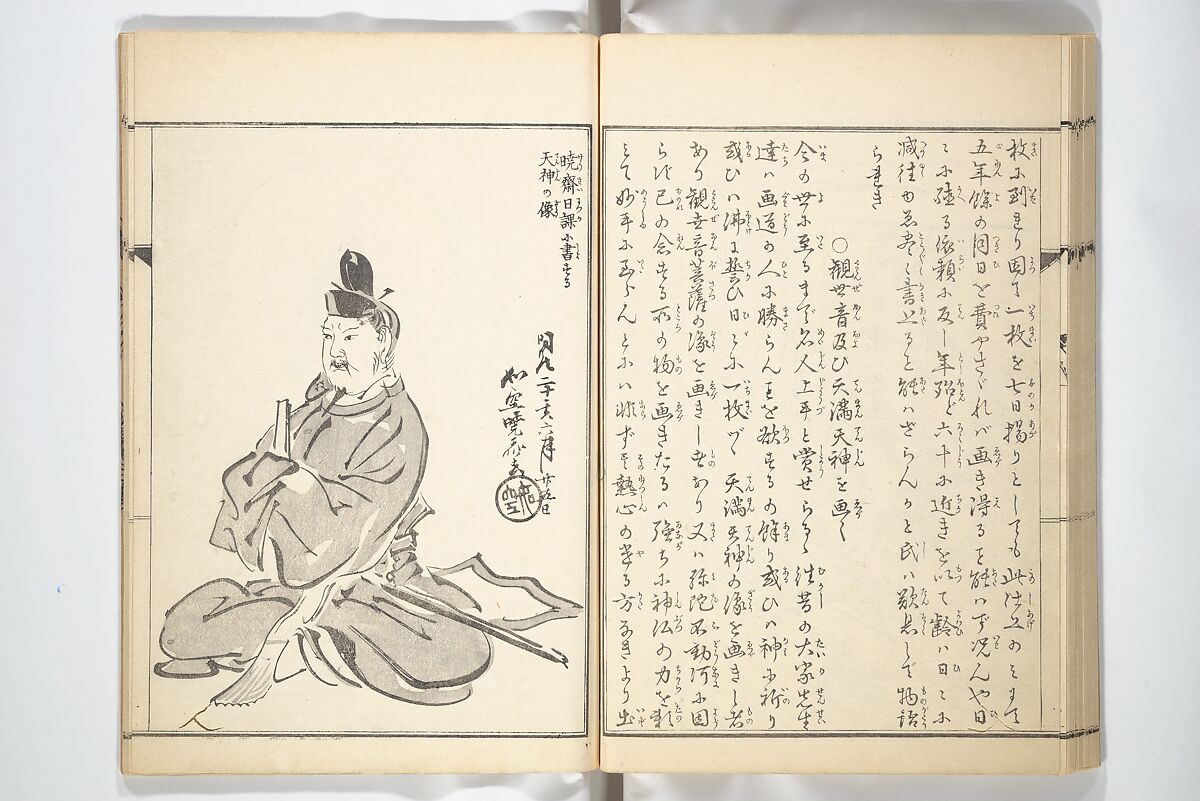 枚に到きり因て一枚を七日揚りとしても此仕上のみにて
五年餘の月日を費やさゞれバ画き得ると能ハず况んや日
ミに種る依頼に反し年殆ど六十に近きを以て齢ハ日ミに
減往ゆゑ尽く書上ると能ハざらんかと氏ハ歎息して物語
られき
〇觀世音及び天満天神を画く
今の世に至るまで名人上手と賞せらるゝ往昔の大家先生
達ハ画道の人に勝らんことを欲するの餘り或ひハ神に祈り
或ひハ佛に誓ひ日ごとに一枚づゝ天満天神の像を画きし者
あり觀世音菩薩の像を画きしもあり又ハ弥陀不動何に因
らず己の念ずる所の物を画きたるハ強ちに神仏の力を頼
ミて妙手に至らんとにハ非ず只熱心の遣る方なきより出
暁齋日課に書する
天神の像
明治二十亥六月廿五日
如空暁斎